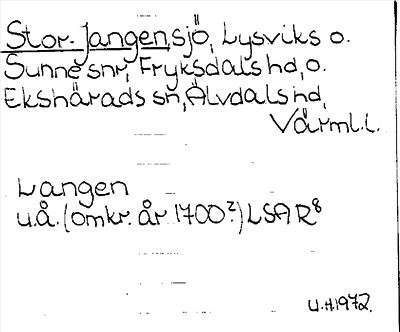 Stor-Jangen, sjö, Lysviks o.
Sunne snr, Fryksdals hd, o.
Ekshärads sn, Älvdals hd,
Värml. l.
Langen
u.å. (omkr. år 1700?) LSA R8
U.H. 1972.